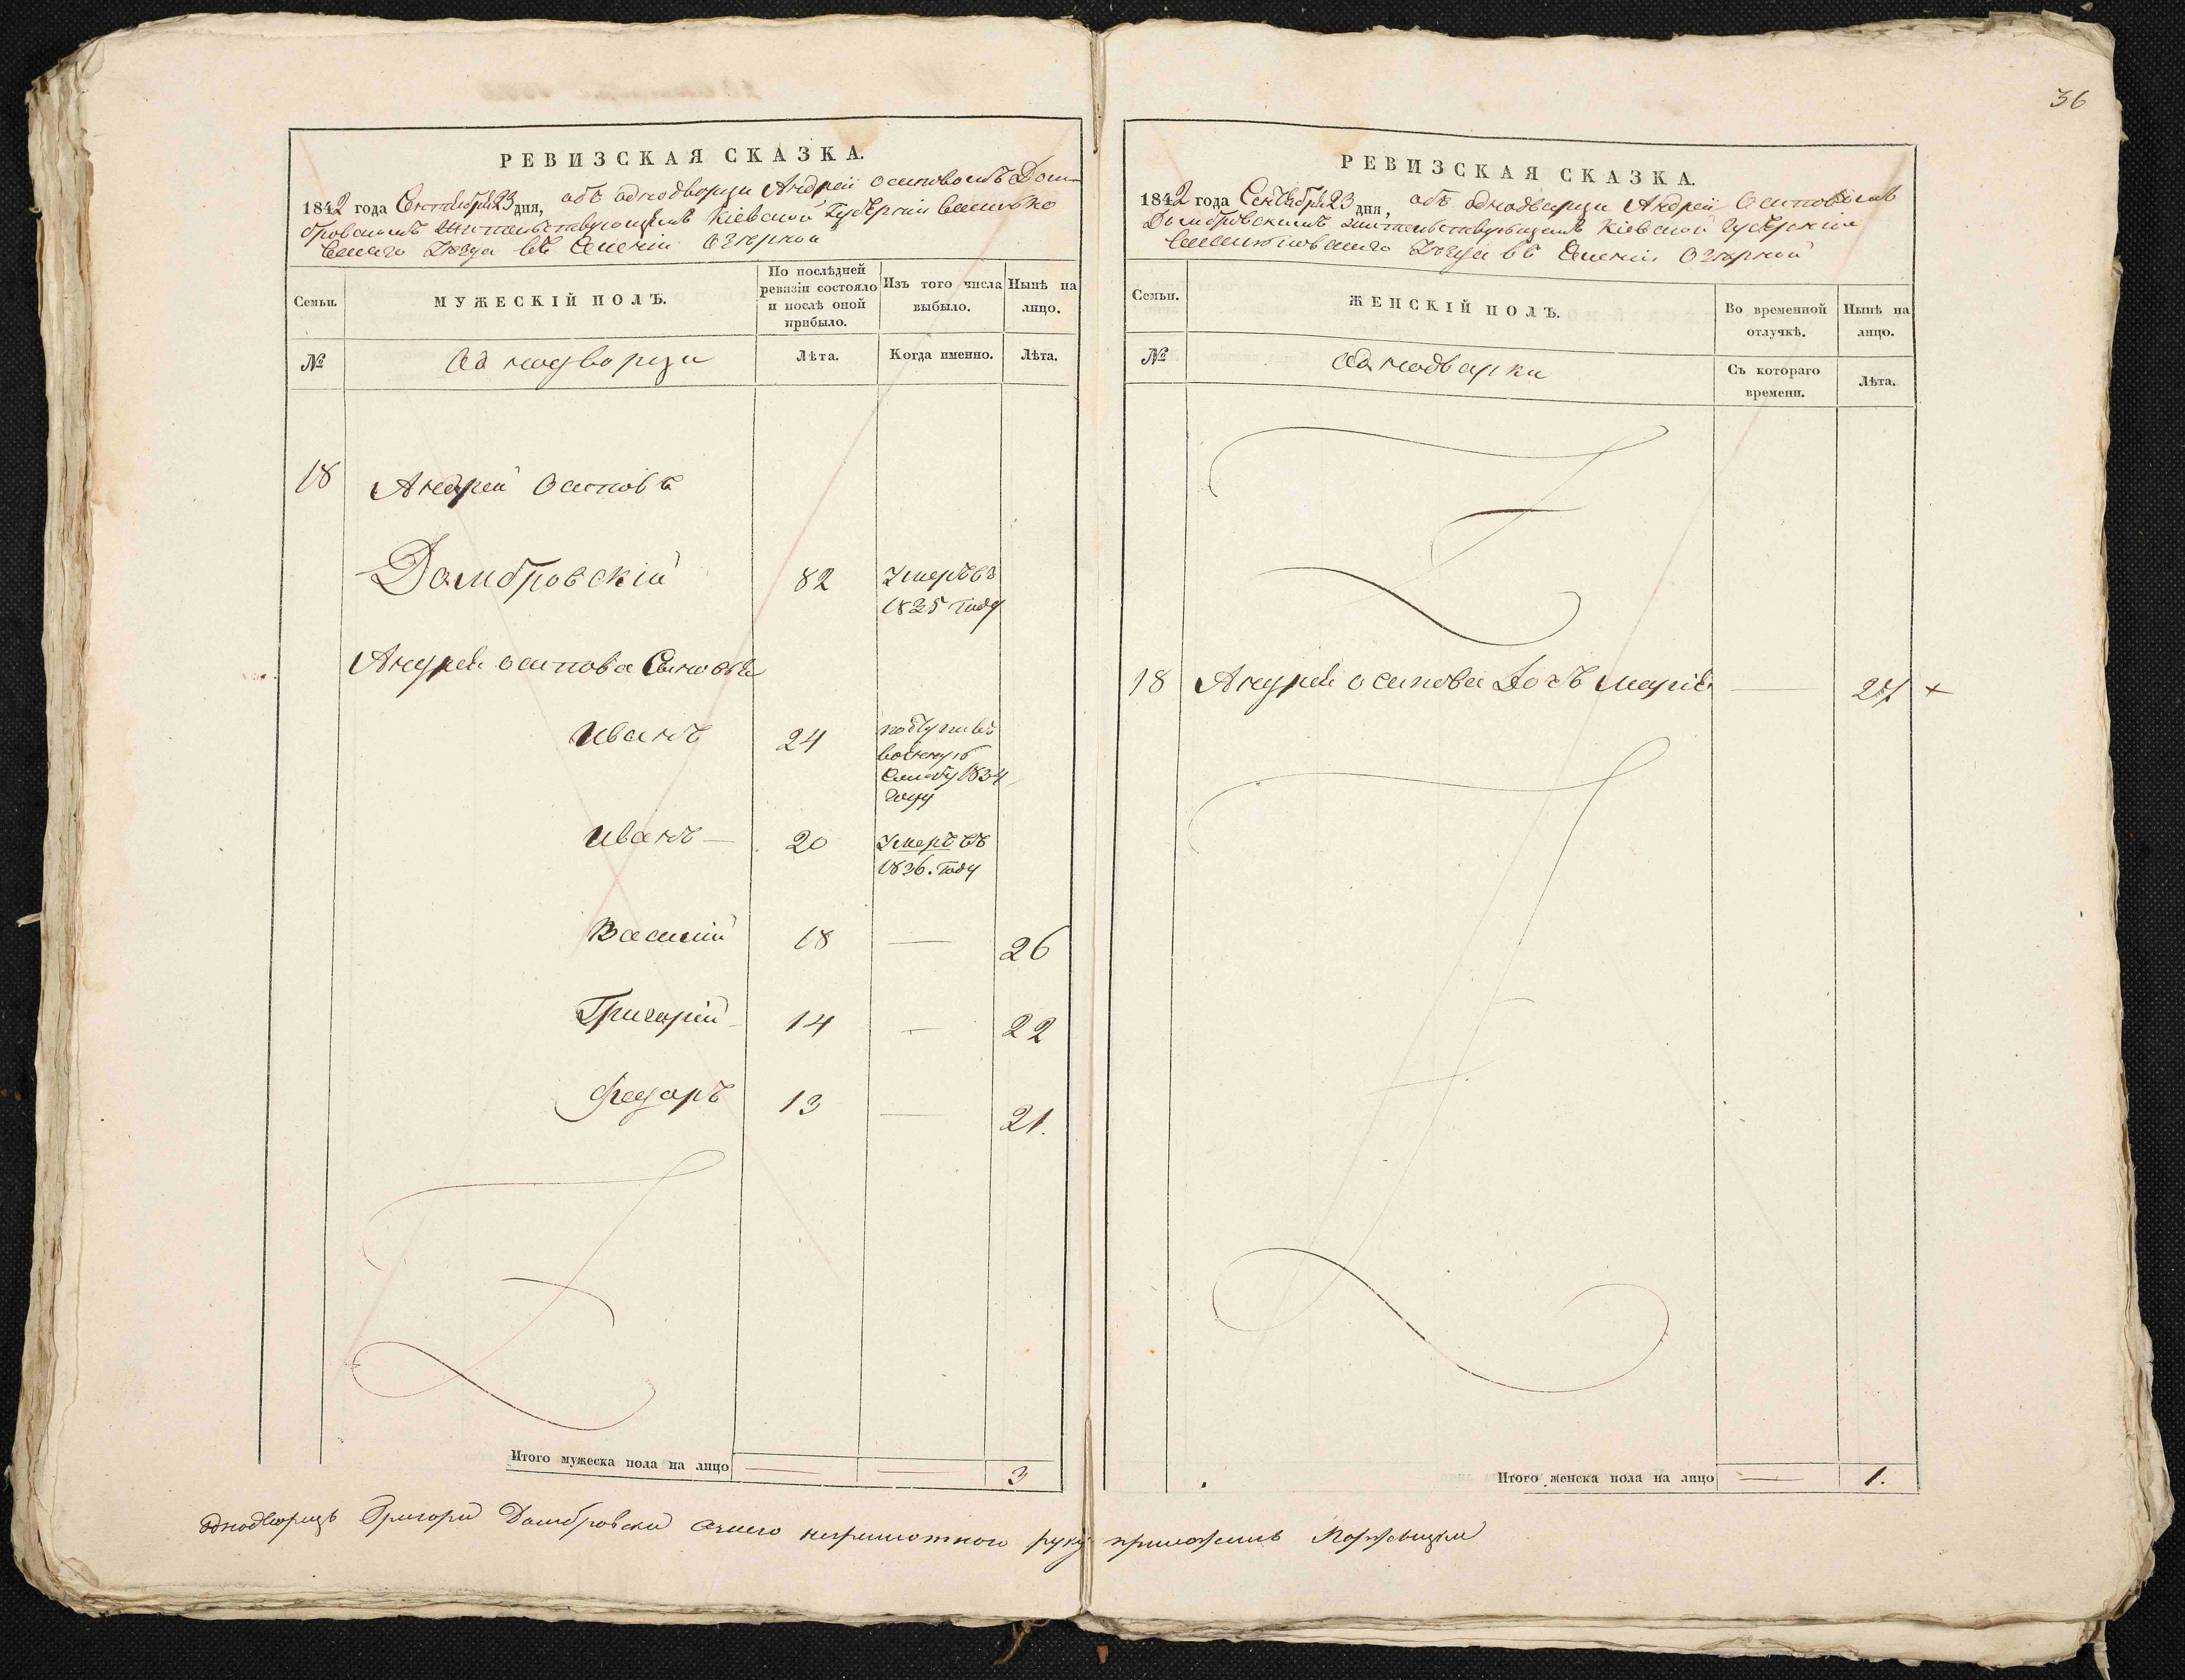 36
РЕВИЗСКАЯ СКАЗКА.
1842 года Сентября 23 дня, объ однодворци Андрей Осиповомъ Дом-
бровскомъ жительствующимъ Кіевской Губерніи
Уезда въ Селеніи Озерной
Семьи.
МУЖЕСКІЙ ПОЛЪ.
По послѣдней ревизіи состояло и послѣ оной прибыло.
Изъ того числа выбыло.
Нынѣ на лицо.
№
Однодворци
Лѣта.
Когда именно.
Лѣта.
18 Андрей Осиповъ
Домбровскій 82 Умеръ въ
1835 году
Андрея Осипова Сыновья
Иванъ 24
службу 1834
году
Иванъ — 20 Умеръ въ
1836. году
Василий 18 — 26
Григорій 14 — 22
Федоръ 13 — 21.
Итого мужеска пола на лицо — — 3
РЕВИЗСКАЯ СКАЗКА.
1842 года Сентября 23 дня, объ однодворци Андрей Осиповомъ
Домбровскимъ жительствующимъ Кіевской Губерніи
Уезда въ Селеніи Озерной
Семьи.
ЖЕНСКІЙ ПОЛЪ.
Во временной отлучкѣ.
Нынѣ на лицо.
№
Однодворки
Съ котораго времени.
Лѣта.
18 Андрея Осипова Дочь Марія — 27 +
Итого женска пола на лицо — 1.
Однодворецъ Григори Домбровски неграмотного руку приложилъ